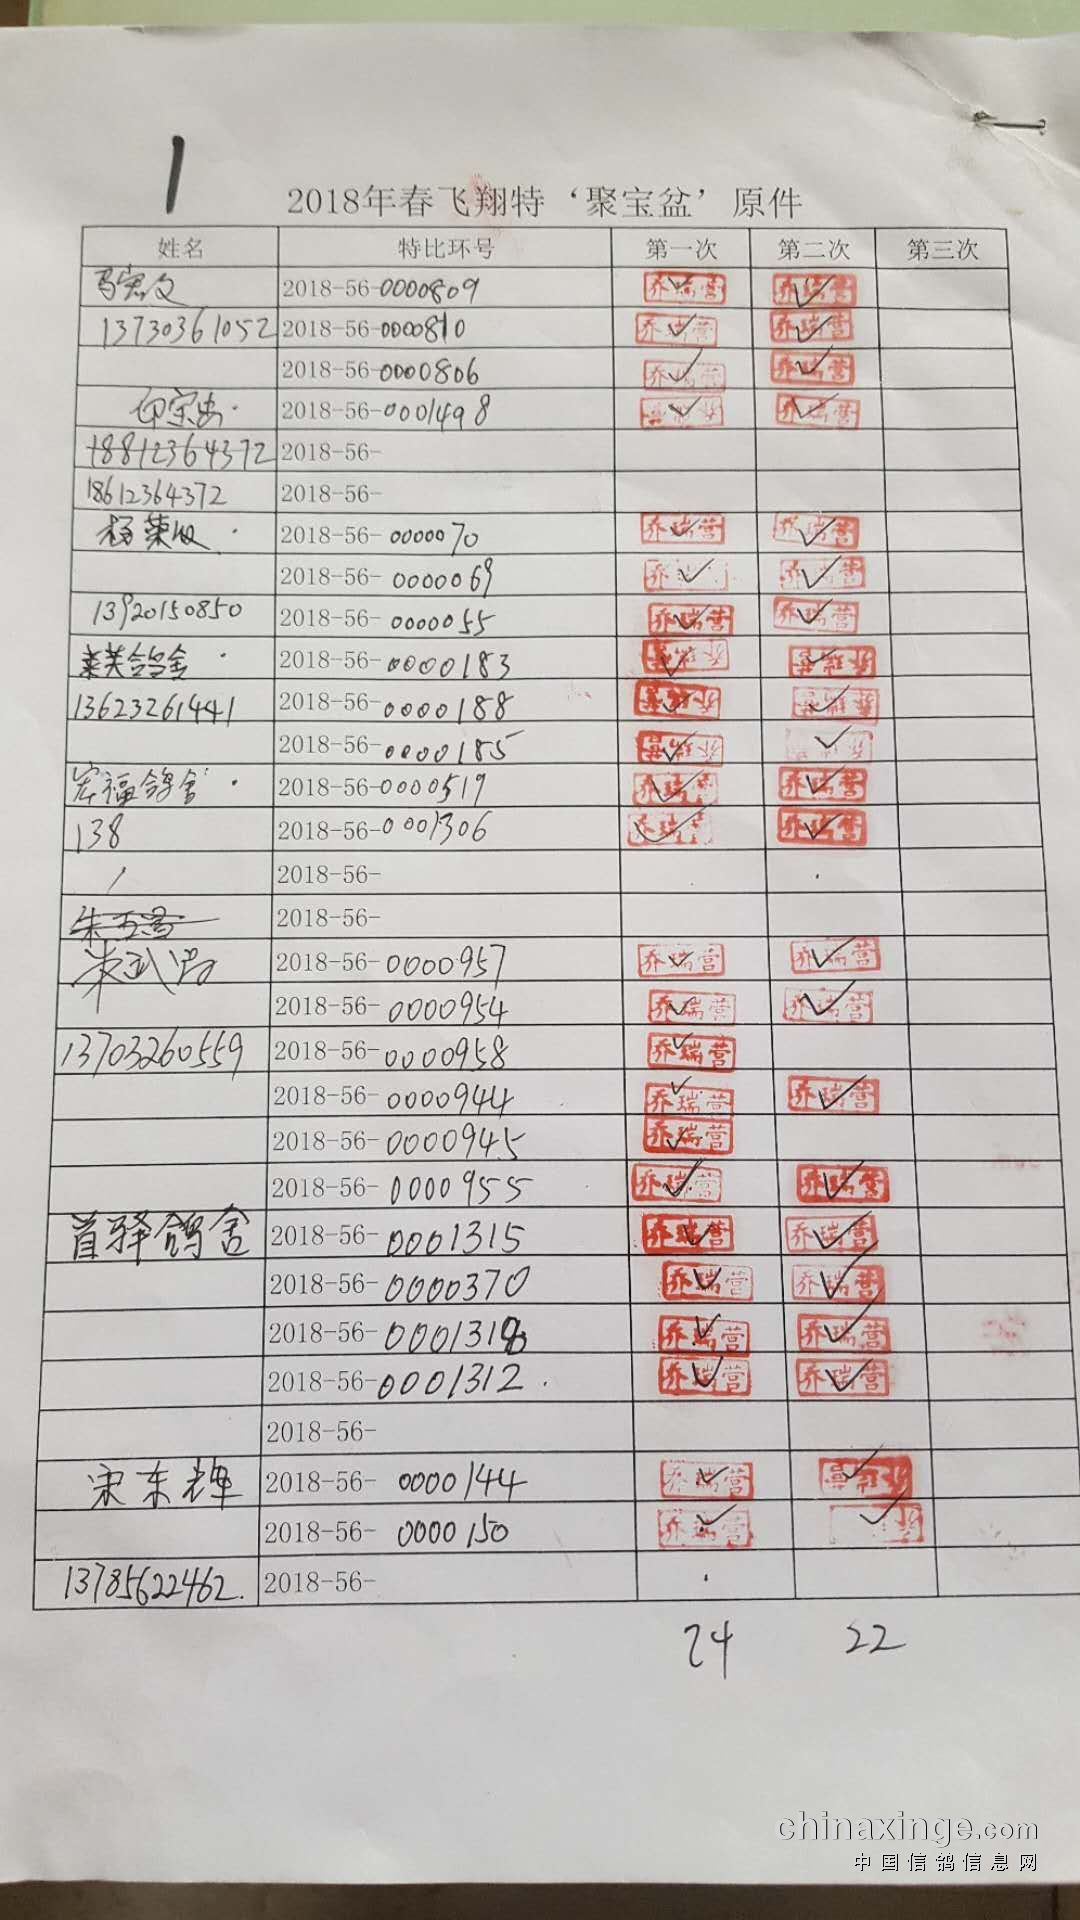 1
2018年春飞翔特‘聚宝盆’原件
姓名 特比环号 第一次 第二次 第三次
2018-56-0000809 乔瑞营 乔瑞营
13730361052 2018-56-0000810 乔瑞营 乔瑞营
2018-56-0000806 乔瑞营 乔瑞营
2018-56-0001498 乔瑞营 乔瑞营
18812364372 2018-56-
18612364372 2018-56-
2018-56-0000070 乔瑞营 乔瑞营
2018-56-0000069 乔瑞营 乔瑞营
13920150850 2018-56-0000055 乔瑞营 乔瑞营
莱芙鸽舍 2018-56-0000183 乔瑞营 乔瑞营
13623261441 2018-56-0000188 乔瑞营 乔瑞营
2018-56-0000185 乔瑞营 乔瑞营
宏福鸽舍 2018-56-0000519 乔瑞营 乔瑞营
138 2018-56-0001306 乔瑞营 乔瑞营
2018-56-
2018-56-
2018-56-0000957 乔瑞营 乔瑞营
2018-56-0000954 乔瑞营 乔瑞营
13703260559 2018-56-0000958 乔瑞营
2018-56-0000944 乔瑞营 乔瑞营
2018-56-0000945 乔瑞营
2018-56-0000955 乔瑞营 乔瑞营
首驿鸽舍 2018-56-0001315 乔瑞营 乔瑞营
2018-56-0000370 乔瑞营 乔瑞营
2018-56-0001318 乔瑞营 乔瑞营
2018-56-0001312 乔瑞营 乔瑞营
2018-56-
宋东辉 2018-56-0000144 乔瑞营 乔瑞营
2018-56-0000150 乔瑞营 乔瑞营
13785622462. 2018-56-
24 22
chinaxinge.com
中国信鸽信息网